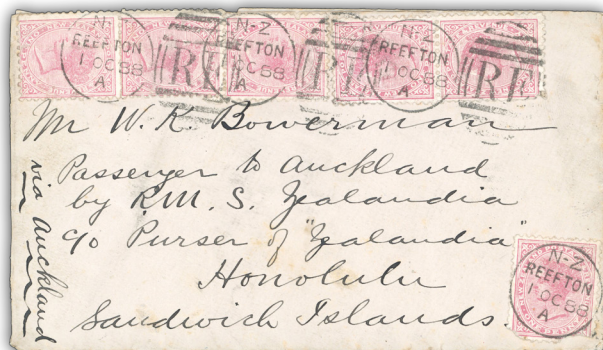 N-Z
REEFTON
1 OC 88
A
RF
N-Z
REEFTON
1 OC 88
A
N-Z
REEFTON
1 OC 88
A
RF
Mr W. K. Bowerman
Passenger to Auckland
by R.M.S. Zealandia
c/o Purser of "Zealandia"
Honolulu
Sandwich Islands.
via Auckland
N-Z
REEFTON
1 OC 88
A